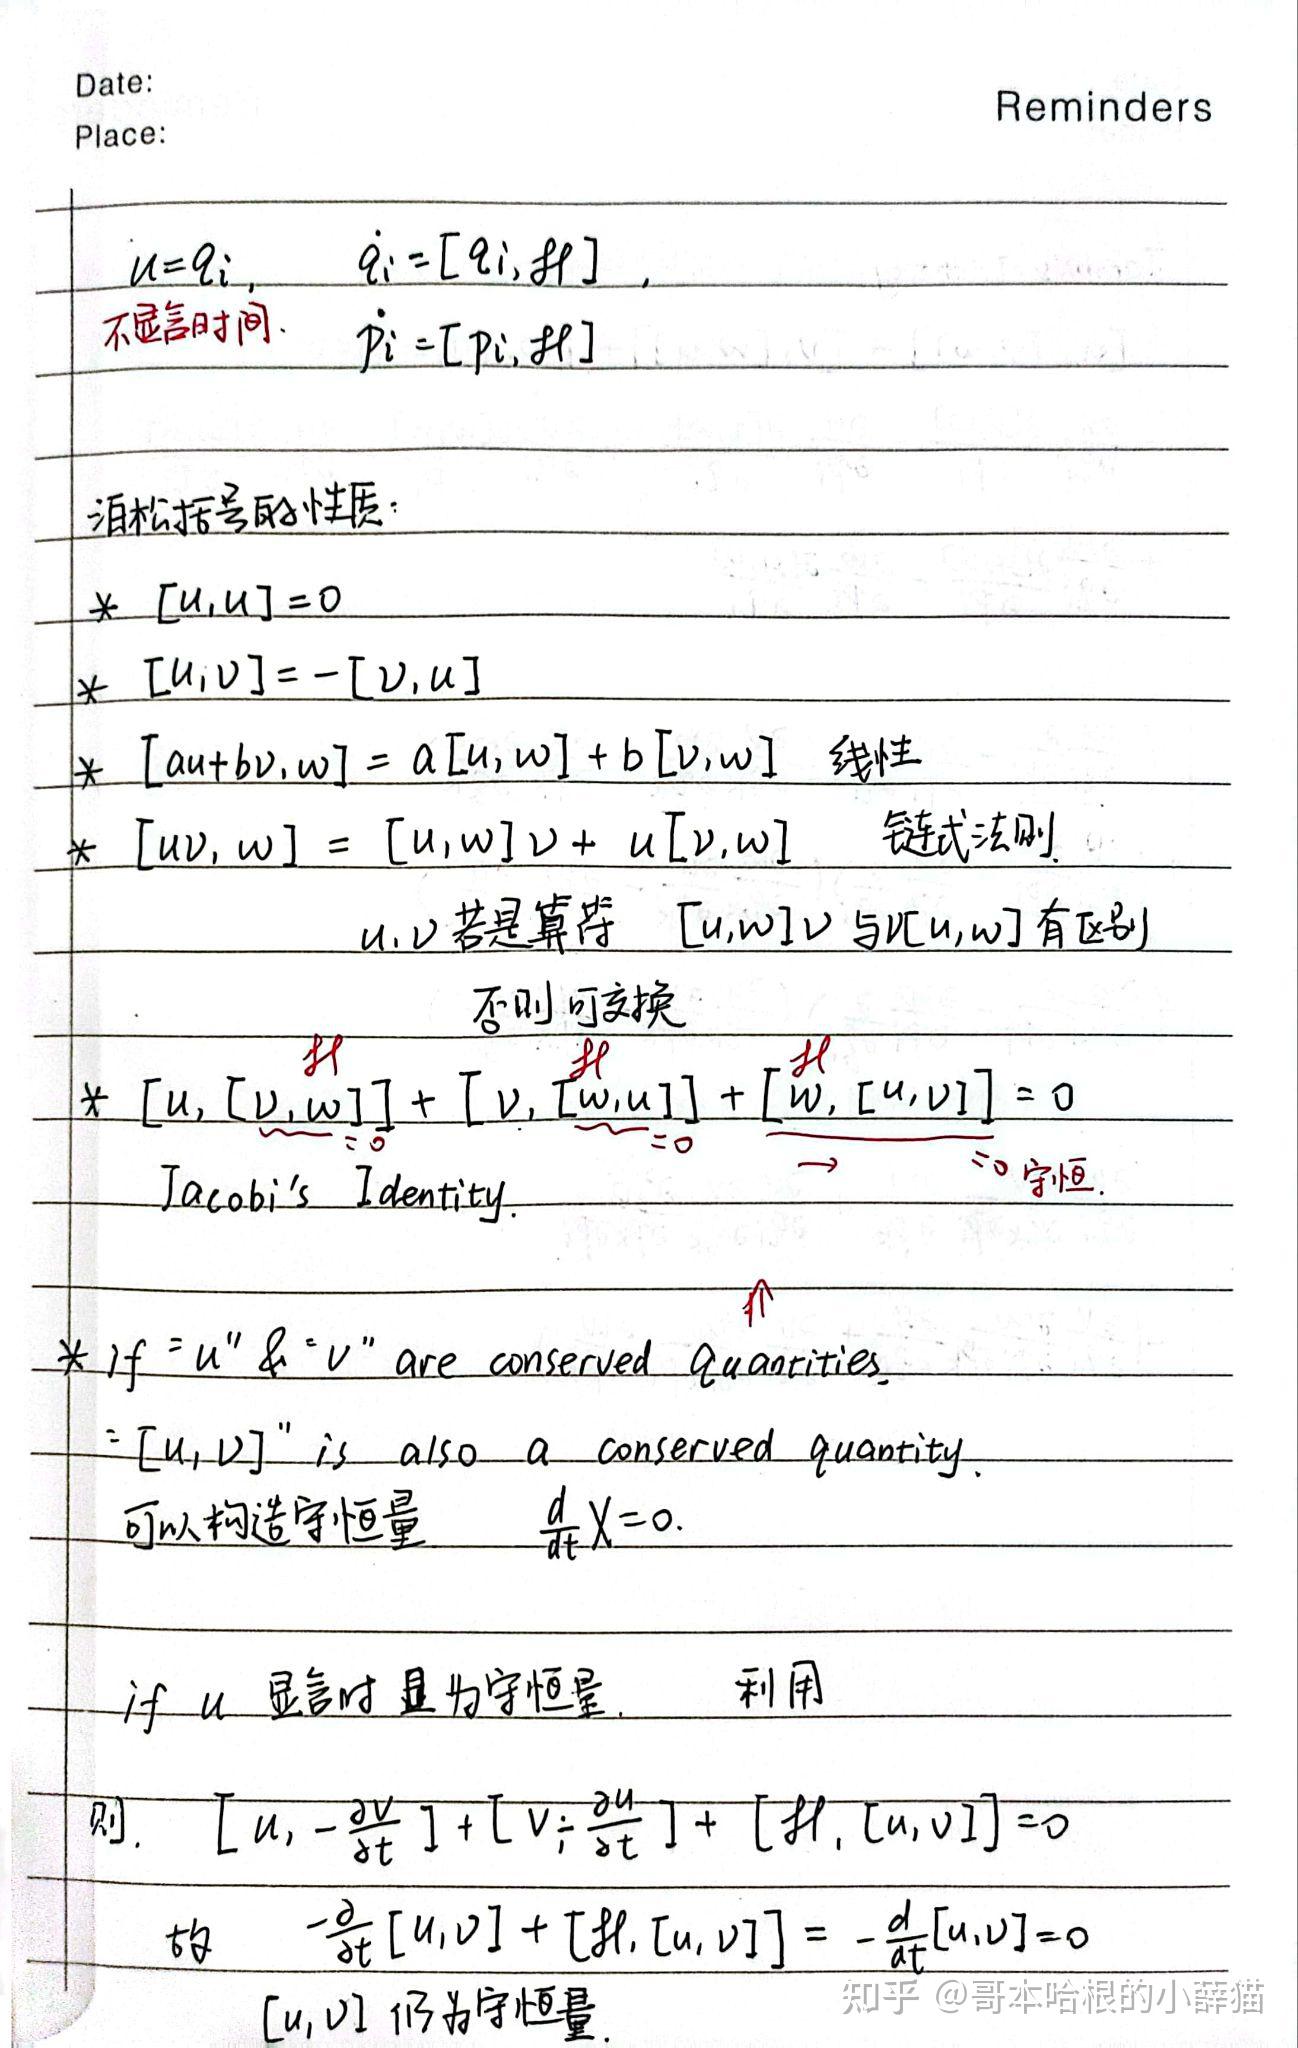 Date:
Place:
Reminders
u=qᵢ, q̇ᵢ=[qᵢ, ℋ],
不显含时间. ṗᵢ=[pᵢ, ℋ]
泊松括号的性质:
* [u,u]=0
* [u,v]=-[v,u]
* [au+bv,w] = a[u,w]+b[v,w] 线性
* [uv, w] = [u,w]v + u[v,w] 链式法则.
u.v若是算符 [u,w]v 与v[u,w]有区别
否则可交换
ℋ ℋ ℋ
* [u, [v,w]] + [v, [w,u]] + [w, [u,v]] = 0
=0 =0 → =0 守恒.
Jacobi's Identity.
⇑
* if "u" & "v" are conserved quantities.
"[u,v]" is also a conserved quantity.
可以构造守恒量 d/dt X=0.
if u 显含时且为守恒量. 利用
则. [u, -∂v/∂t] + [v, ∂u/∂t] + [ℋ, [u,v]]=0
故 -∂/∂t [u,v] + [ℋ, [u,v]] = -d/dt [u,v]=0
[u,v] 仍为守恒量.
知乎 @哥本哈根的小薛猫